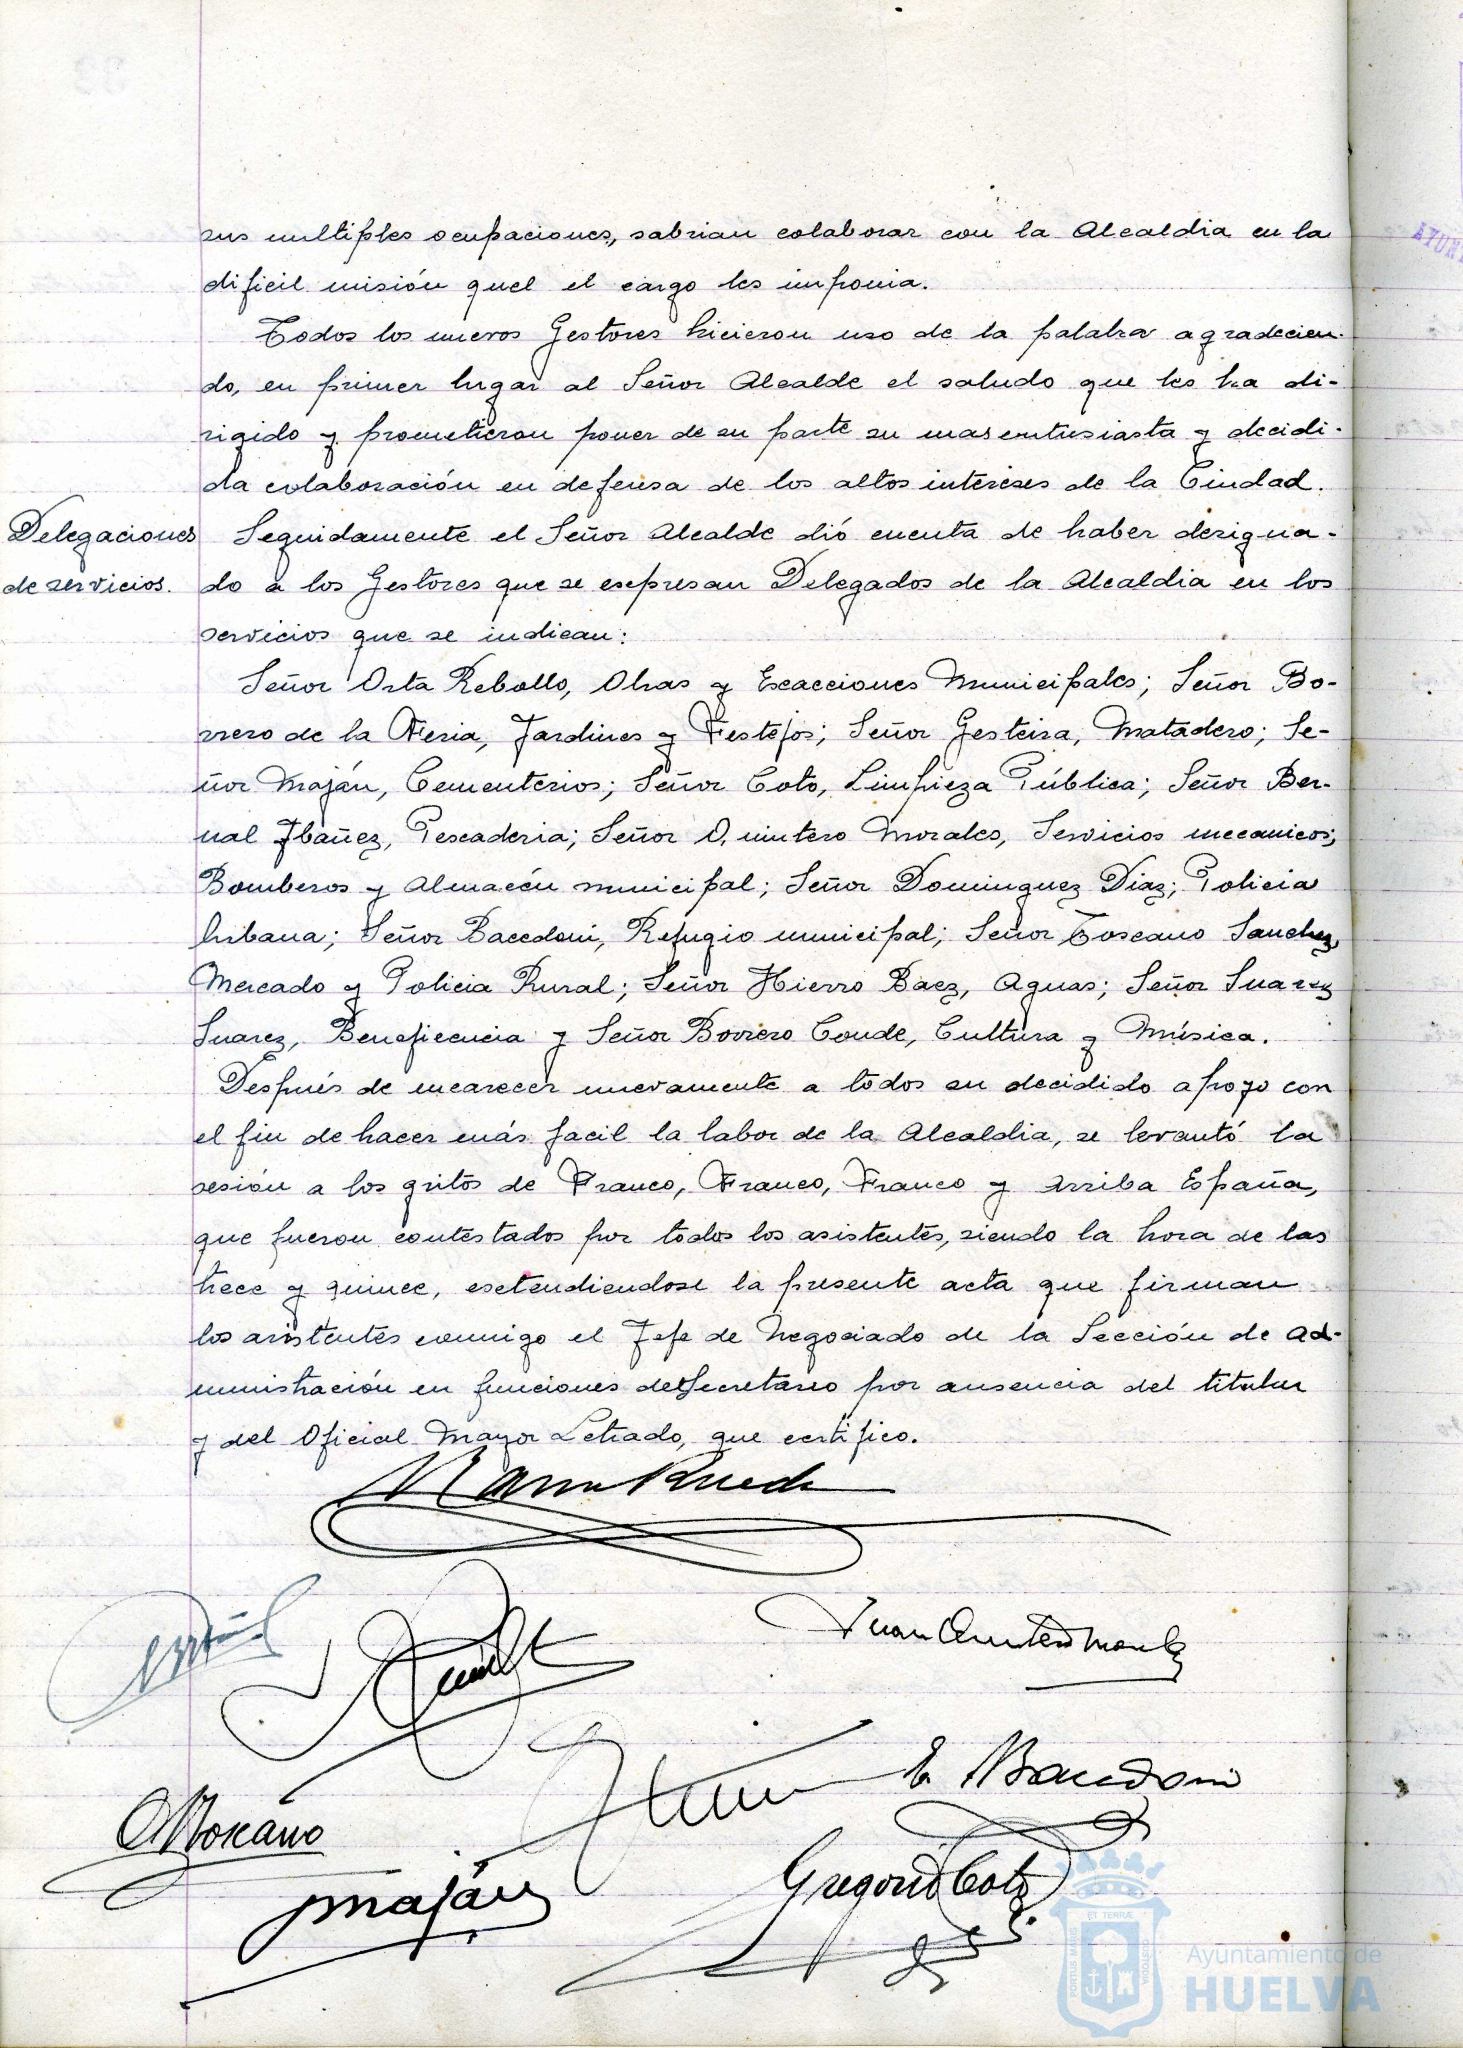 sus multiples ocupaciones, sabrian colaborar con la Alcaldia en la
dificil misión quel el cargo les imponia.
Todos los nuevos Gestores hicieron uso de la palabra agradecien-
do, en primer lugar al Señor Alcalde el saludo que les ha di-
rigido y prometieron poner de su parte su mas entusiasta y decidi-
da colaboración en defensa de los altos intereses de la Ciudad.
Delegaciones
de servicios.
Seguidamente el Señor Alcalde dió cuenta de haber designa-
do a los Gestores que se expresan Delegados de la Alcaldia en los
servicios que se indican:
Señor Orta Rebollo, Obras y Exacciones Municipales; Señor Bo-
rrero de la Feria, Jardines y Festejos; Señor Gesteira, Matadero; Se-
ñor Maján, Cementerios; Señor Coto, Limpieza Pública; Señor Ber-
nal Ibañez, Pescaderia; Señor Quintero Morales, Servicios mecanicos,
Bomberos y Almacén municipal; Señor Dominguez Diaz; Policia
Urbana; Señor Baccdoni, Refugio municipal; Señor Toscano Sanchez,
Mercado y Policia Rural; Señor Hierro Baez, Aguas; Señor Suarez
Suarez, Beneficencia y Señor Borrero Conde, Cultura y Música.
Después de encarecer nuevamente a todos su decidido apoyo con
el fin de hacer más facil la labor de la Alcaldia, se levantó la
sesión a los gritos de Franco, Franco, Franco y Arriba España,
que fueron contestados por todos los asistentes, siendo la hora de las
trece y quince, extendiendose la presente acta que firman
los asistentes conmigo el Jefe de Negociado de la Sección de Ad-
ministración en funciones de Secretario por ausencia del titular
y del Oficial Mayor Letrado, que certifico.
Juan Quintero Morales
E. Baccdoni
Toscano
Maján
Gregorio Coto
PORTUS MARIS ET TERRÆ CUSTODIA
Ayuntamiento de
HUELVA